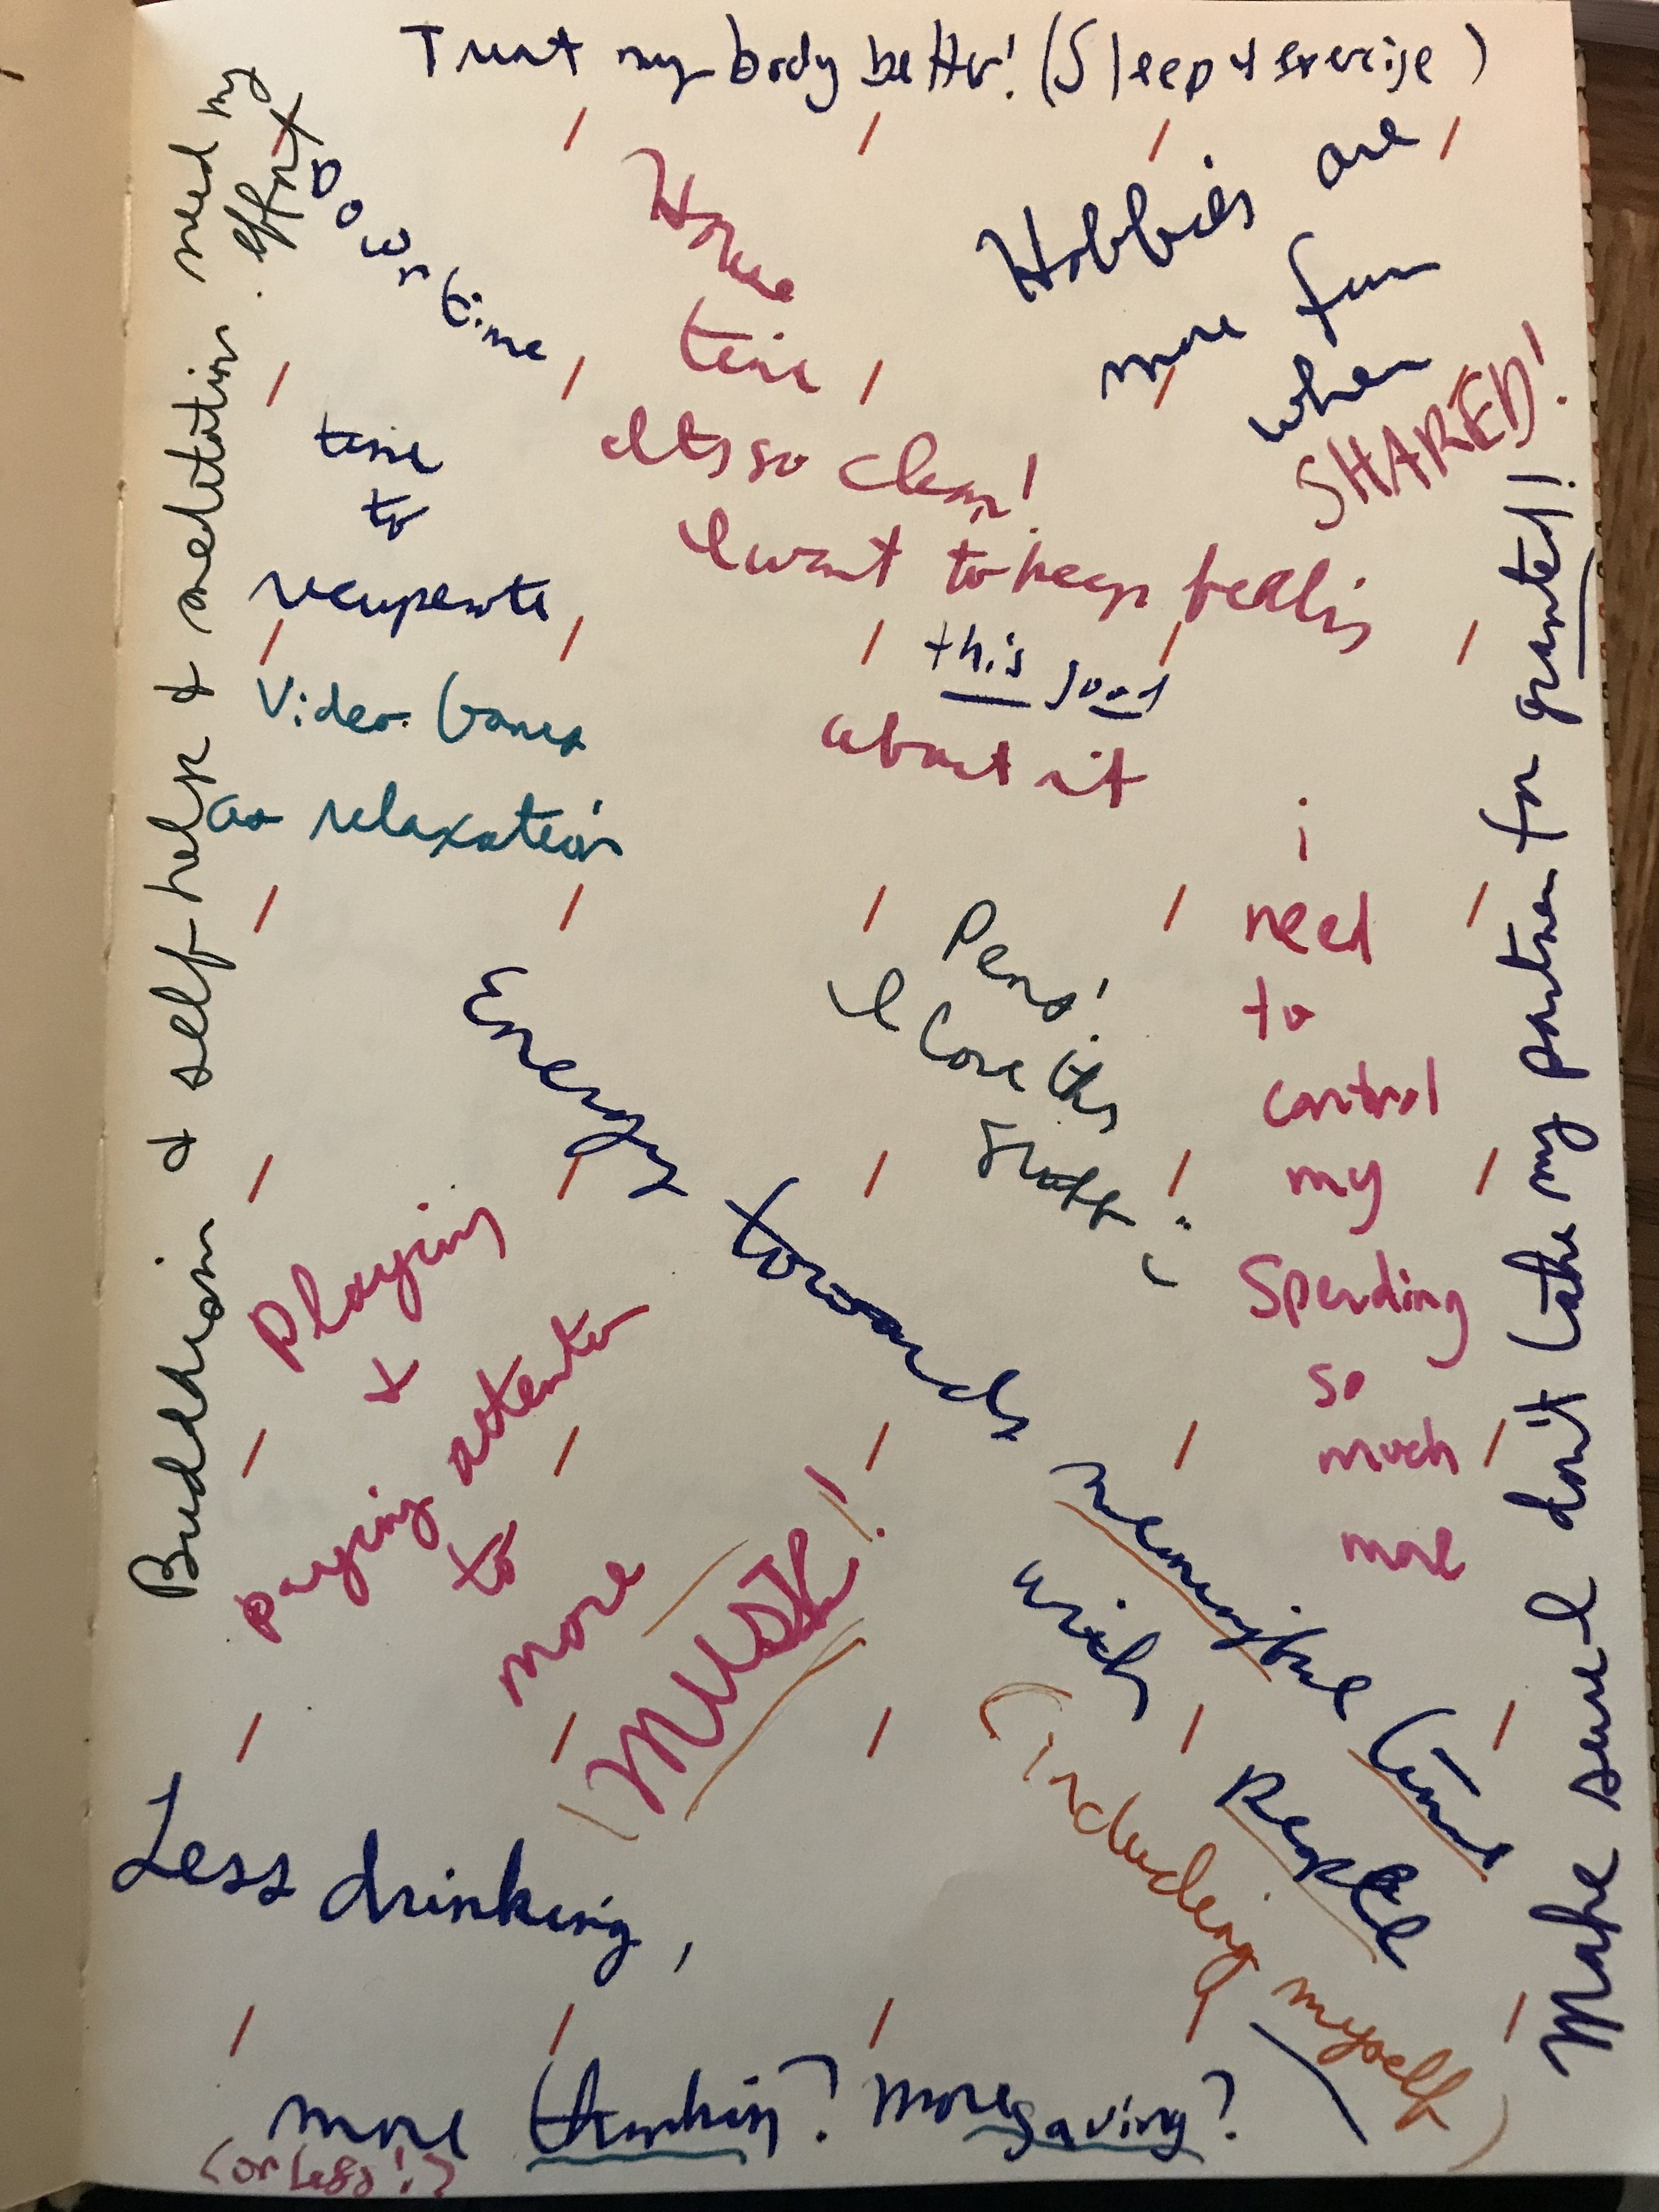 Treat my body better! (Sleep & exercise)
Buddhism & self-help & meditation need my
effort
Downtime
time
to
recuperate
Home
time
It's so clean!
I want to keep feeling
this good
about it
Hobbies are
more fun
when
SHARED!
Video Games
as relaxation
Pens!
I love this
stuff :)
i
need
to
control
my
spending
so
much
more
Energy towards meaningful time
with people
(including myself)
Playing
&
paying attention
to
more
MUSIC!
Make sure I don't take my partner for granted!
Less drinking,
more thinking? More saving?
(or less!?)